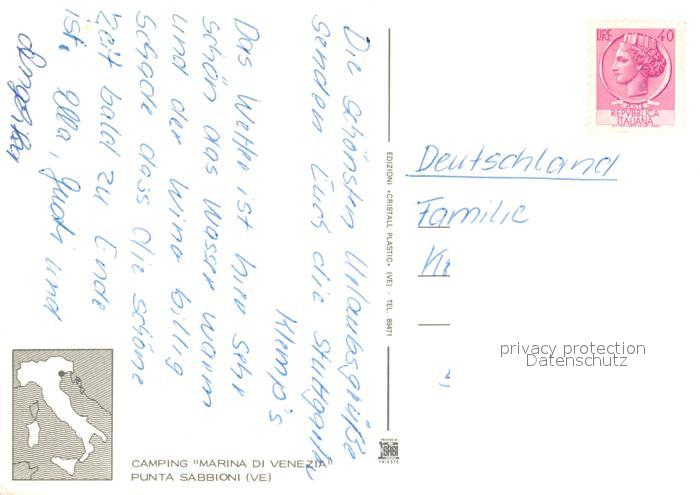 Die schönsten Urlaubsgrüße
senden Euch die Stuttgarter
Klempo's
Das Wetter ist hier sehr
schön das Wasser warm
und der Wino billig
Schade dass die schöne
Zeit bald zu Ende
ist. und
Angelika
LIRE 40
POSTE
REPVBBLICA
ITALIANA
Deutschland
Familie
EDIZIONI «CRISTALL PLASTIC» (VE) - TEL. 89471
privacy protection
Datenschutz
PRINTED BY
TRIESTE
CAMPING "MARINA DI VENEZIA"
PUNTA SABBIONI (VE)